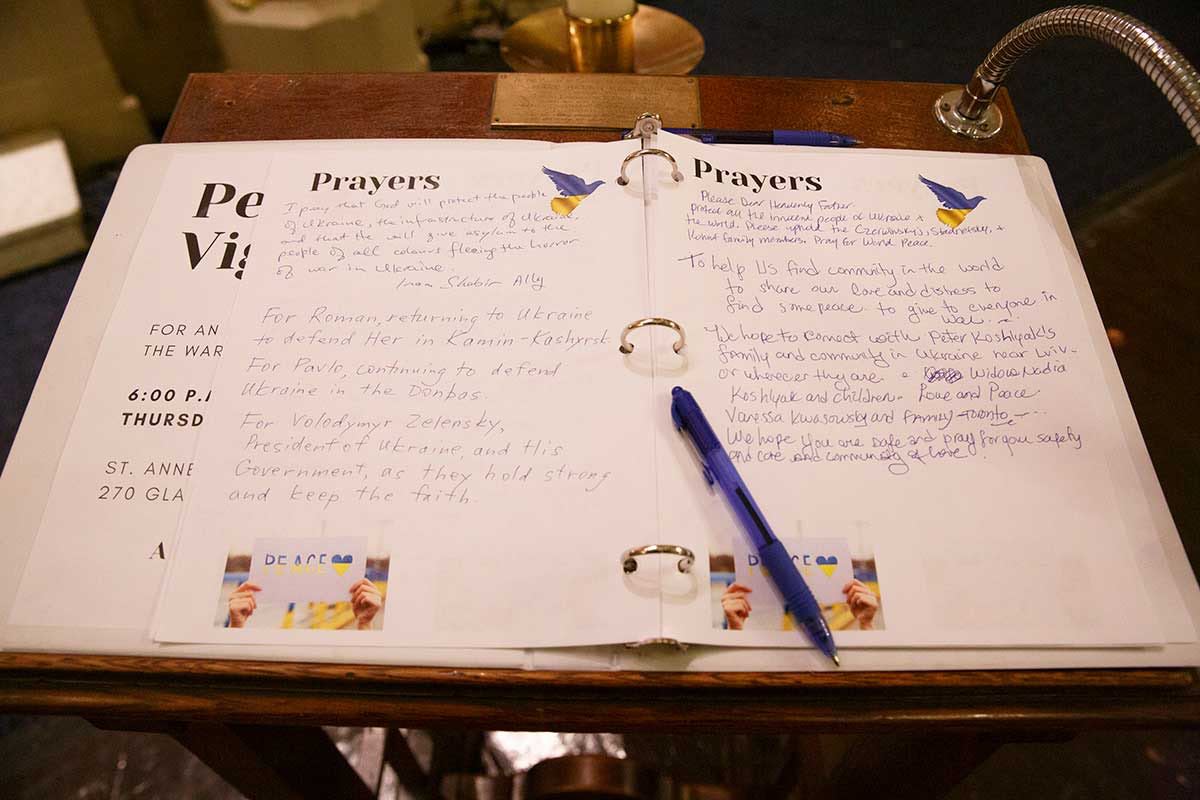 Pe
Vig
FOR AN
THE WAR
6:00 P.
THURSD
ST. ANNE
270 GLA
A
Prayers
I pray that God will protect the people
of Ukraine, the infrastructure of Ukraine,
and that the will give asylum to the
people of all colours fleeing the horror
of war in Ukraine.
Imam Shabir Ally
For Roman, returning to Ukraine
to defend Her in Kamin-Kashyrsk
For Pavlo, continuing to defend
Ukraine in the Donbas.
For Volodymyr Zelensky,
President of Ukraine, and His
Government, as they hold strong
and keep the faith.
PEACE
Prayers
Please Dear Heavenly Father
protect all the innocent people of Ukraine +
the world. Please uphold the &
family members. Pray for World Peace.
To help us find community in the world
to share our love and distress to
find some peace to give to everyone in
We hope to connect with Peter Koshlyak's
family and community in Ukraine near Lviv -
or wherever they are. Widow Nadia
Koshlyak and children - Love and Peace
Vanessa Kwasowsky and family Toronto
We hope you are safe and pray for your safety
and care and community of love.
PEACE